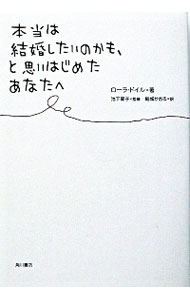 本当は
結婚したいのかも、
と思いはじめた
あなたへ
ローラ・ドイル・著
池下育子・監修 鶴城かおる・訳
角川書店